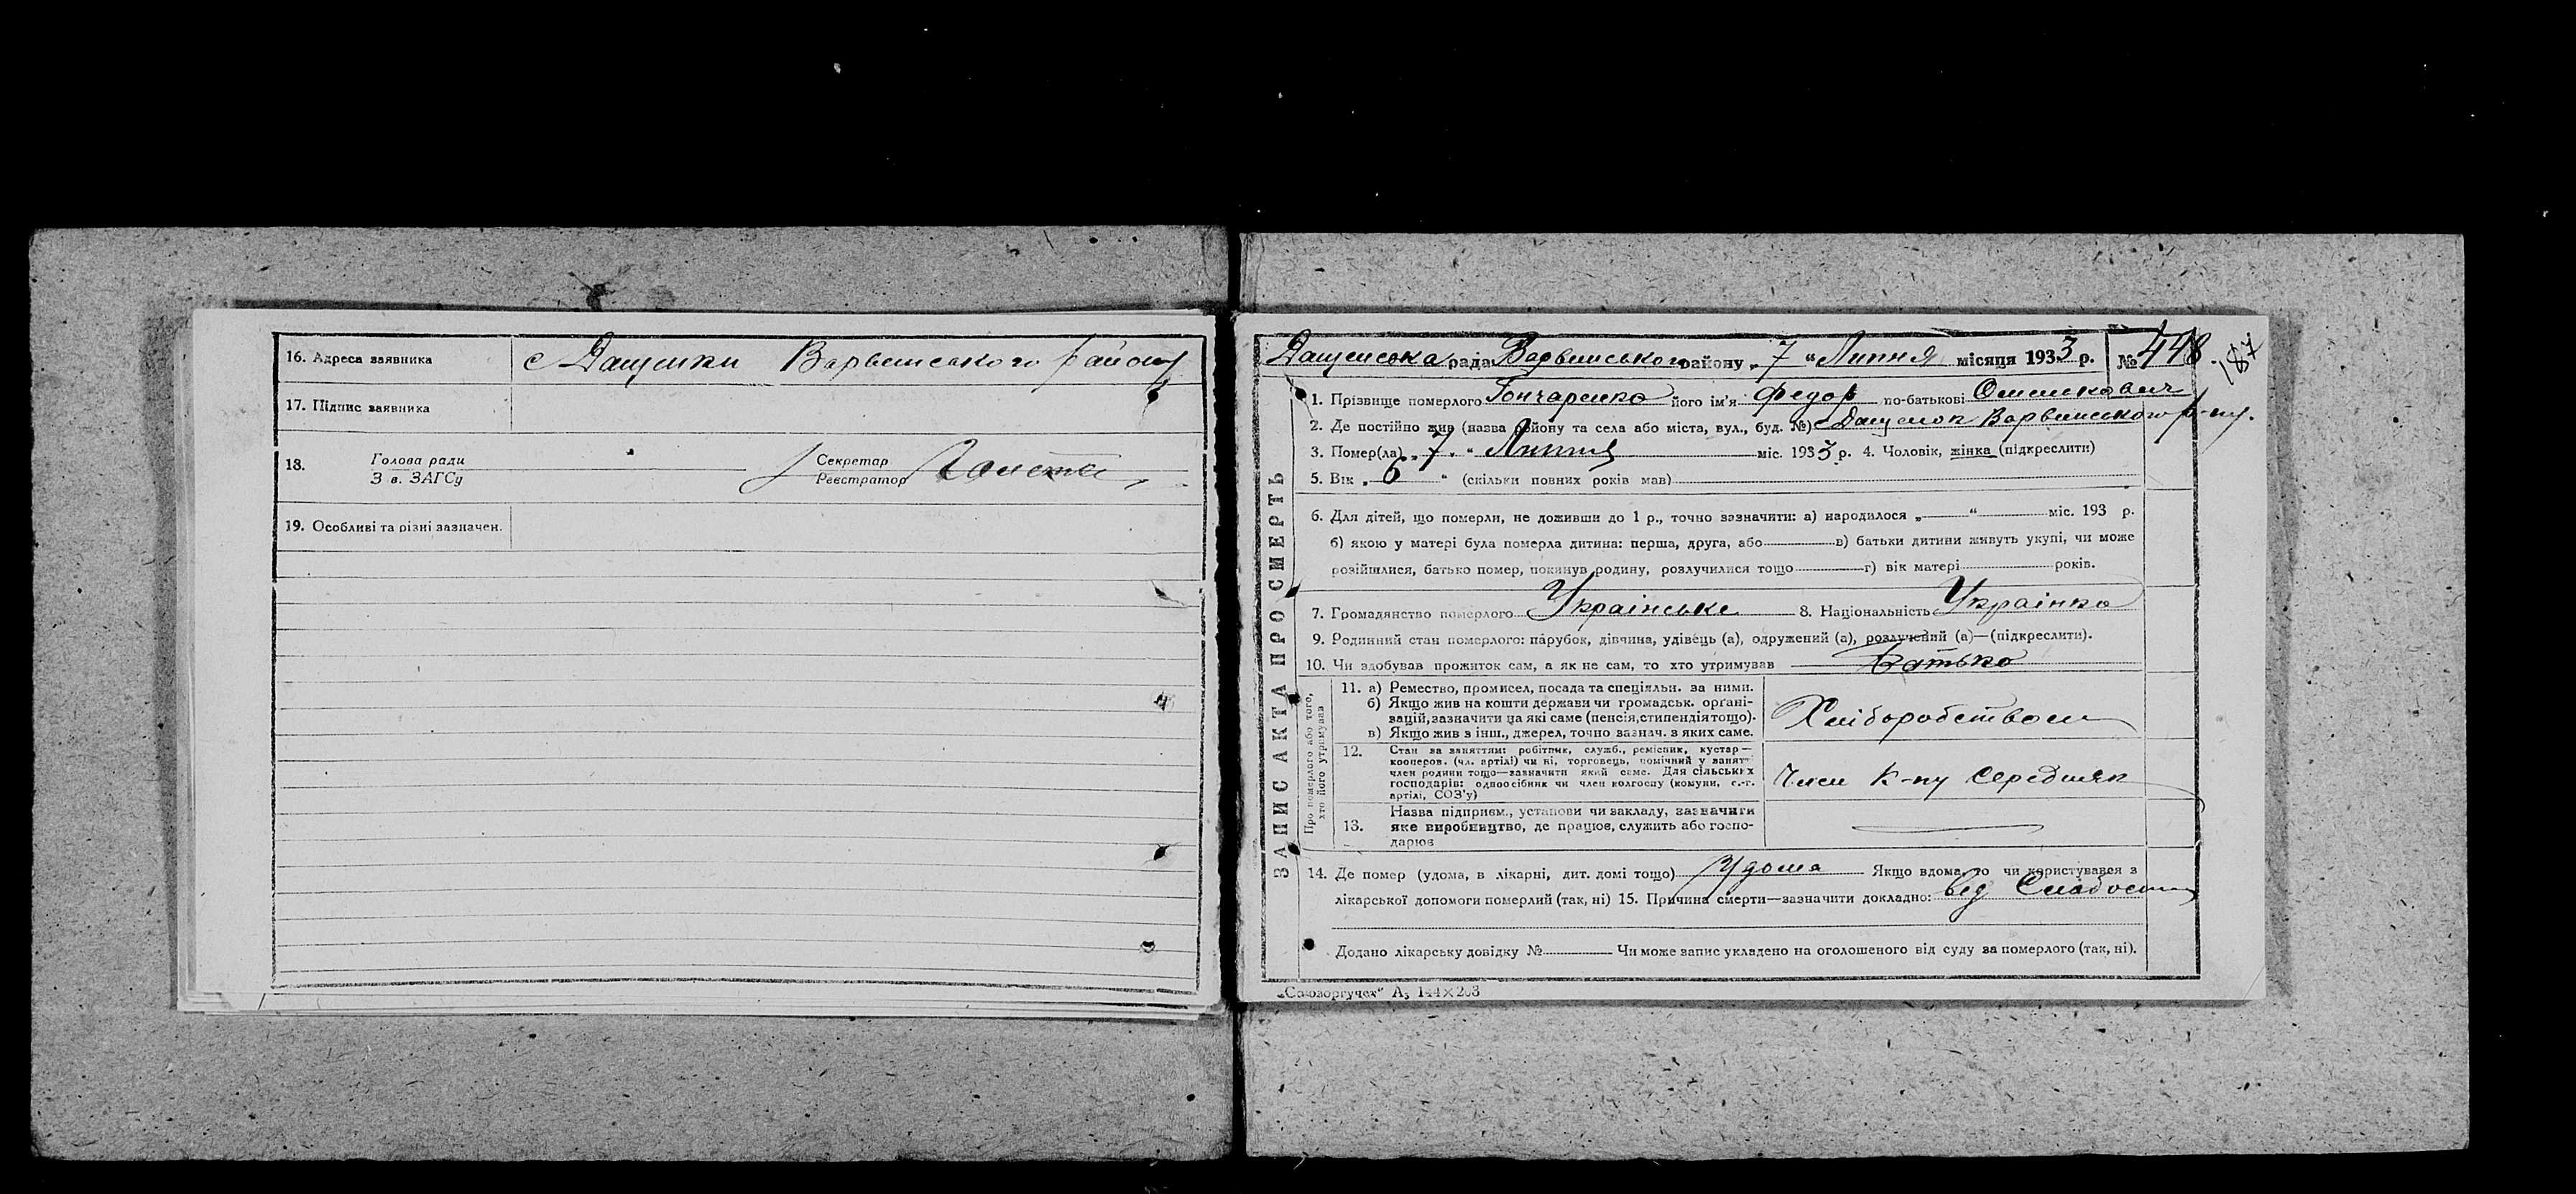 16. Адреса заявника с Дащенки Варвинського району
17. Підпис заявника
18. Голова ради Секретар
З в. ЗАГСу Реєстратор
19. Особливі та різні зазначен.
Дащенська рада Варвинського району „ 7 “ Липня місяця 1933 р. № 448.
187
ЗАПИС АКТА ПРО СМЕРТЬ
1. Прізвище померлого Гончаренко його ім'я Федор по-батькові
2. Де постійно жив (назва району та села або міста, вул., буд. №) с Дащенок Варвинського р-ну.
3. Помер(ла) „ 7 “ Липня міс. 1933 р. 4. Чоловік, жінка (підкреслити)
5. Вік „ 6 “ (скільки повних років мав)
6. Для дітей, що померли, не доживши до 1 р., точно зазначити: а) народилося „ “ міс. 193 р.
б) якою у матері була померла дитина: перша, друга, або в) батьки дитини живуть укупі, чи може
розійшлися, батько помер, покинув родину, розлучилися тощо г) вік матері років.
7. Громадянство померлого Українське 8. Національність Українка
9. Родинний стан померлого: парубок, дівчина, удівець (а), одружений (а), розлучений (а)—(підкреслити).
10. Чи здобував прожиток сам, а як не сам, то хто утримував Батько
Про померлого або того,
хто його утримував
11. а) Ремество, промисел, посада та спеціяльн. за ними.
б) Якщо жив на кошти держави чи громадськ. орґані-
зацій, зазначити на які саме (пенсія, стипендія тощо).
в) Якщо жив з інш., джерел, точно зазнач. з яких саме.
Хліборобством
12. Стан за заняттям: робітник, служб., ремісник, кустар—
кооперов. (чл. артілі) чи ні, торговець, помічний у занят-
член родини тощо—зазначити який саме. Для сільських
господарів: одноосібник чи член колгоспу (комуни, с.-г.
артілі, СОЗ'у)
Член К-пу Середняк
13. Назва підприєм., установи чи закладу, зазначити
яке виробництво, де працює, служить або госпо-
дарює
14. Де помер (удома, в лікарні, дит. домі тощо) Удома Якщо вдома, то чи користувався з
лікарської допомоги померлий (так, ні) 15. Причина смерти—зазначити докладно: від Слабости
Додано лікарську довідку № Чи може запис укладено на оголошеного від суду за померлого (так, ні).
„Союзоргучет“ А₅ 144×203